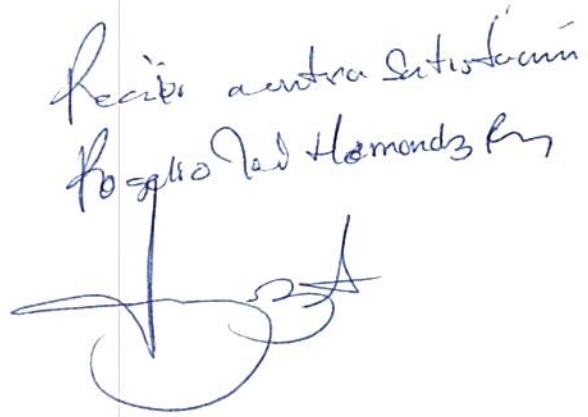 Recibi a entra Satisfacción
Rogelio Hernandz